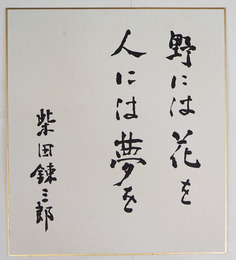 野には花を
人には夢を
柴田錬三郎